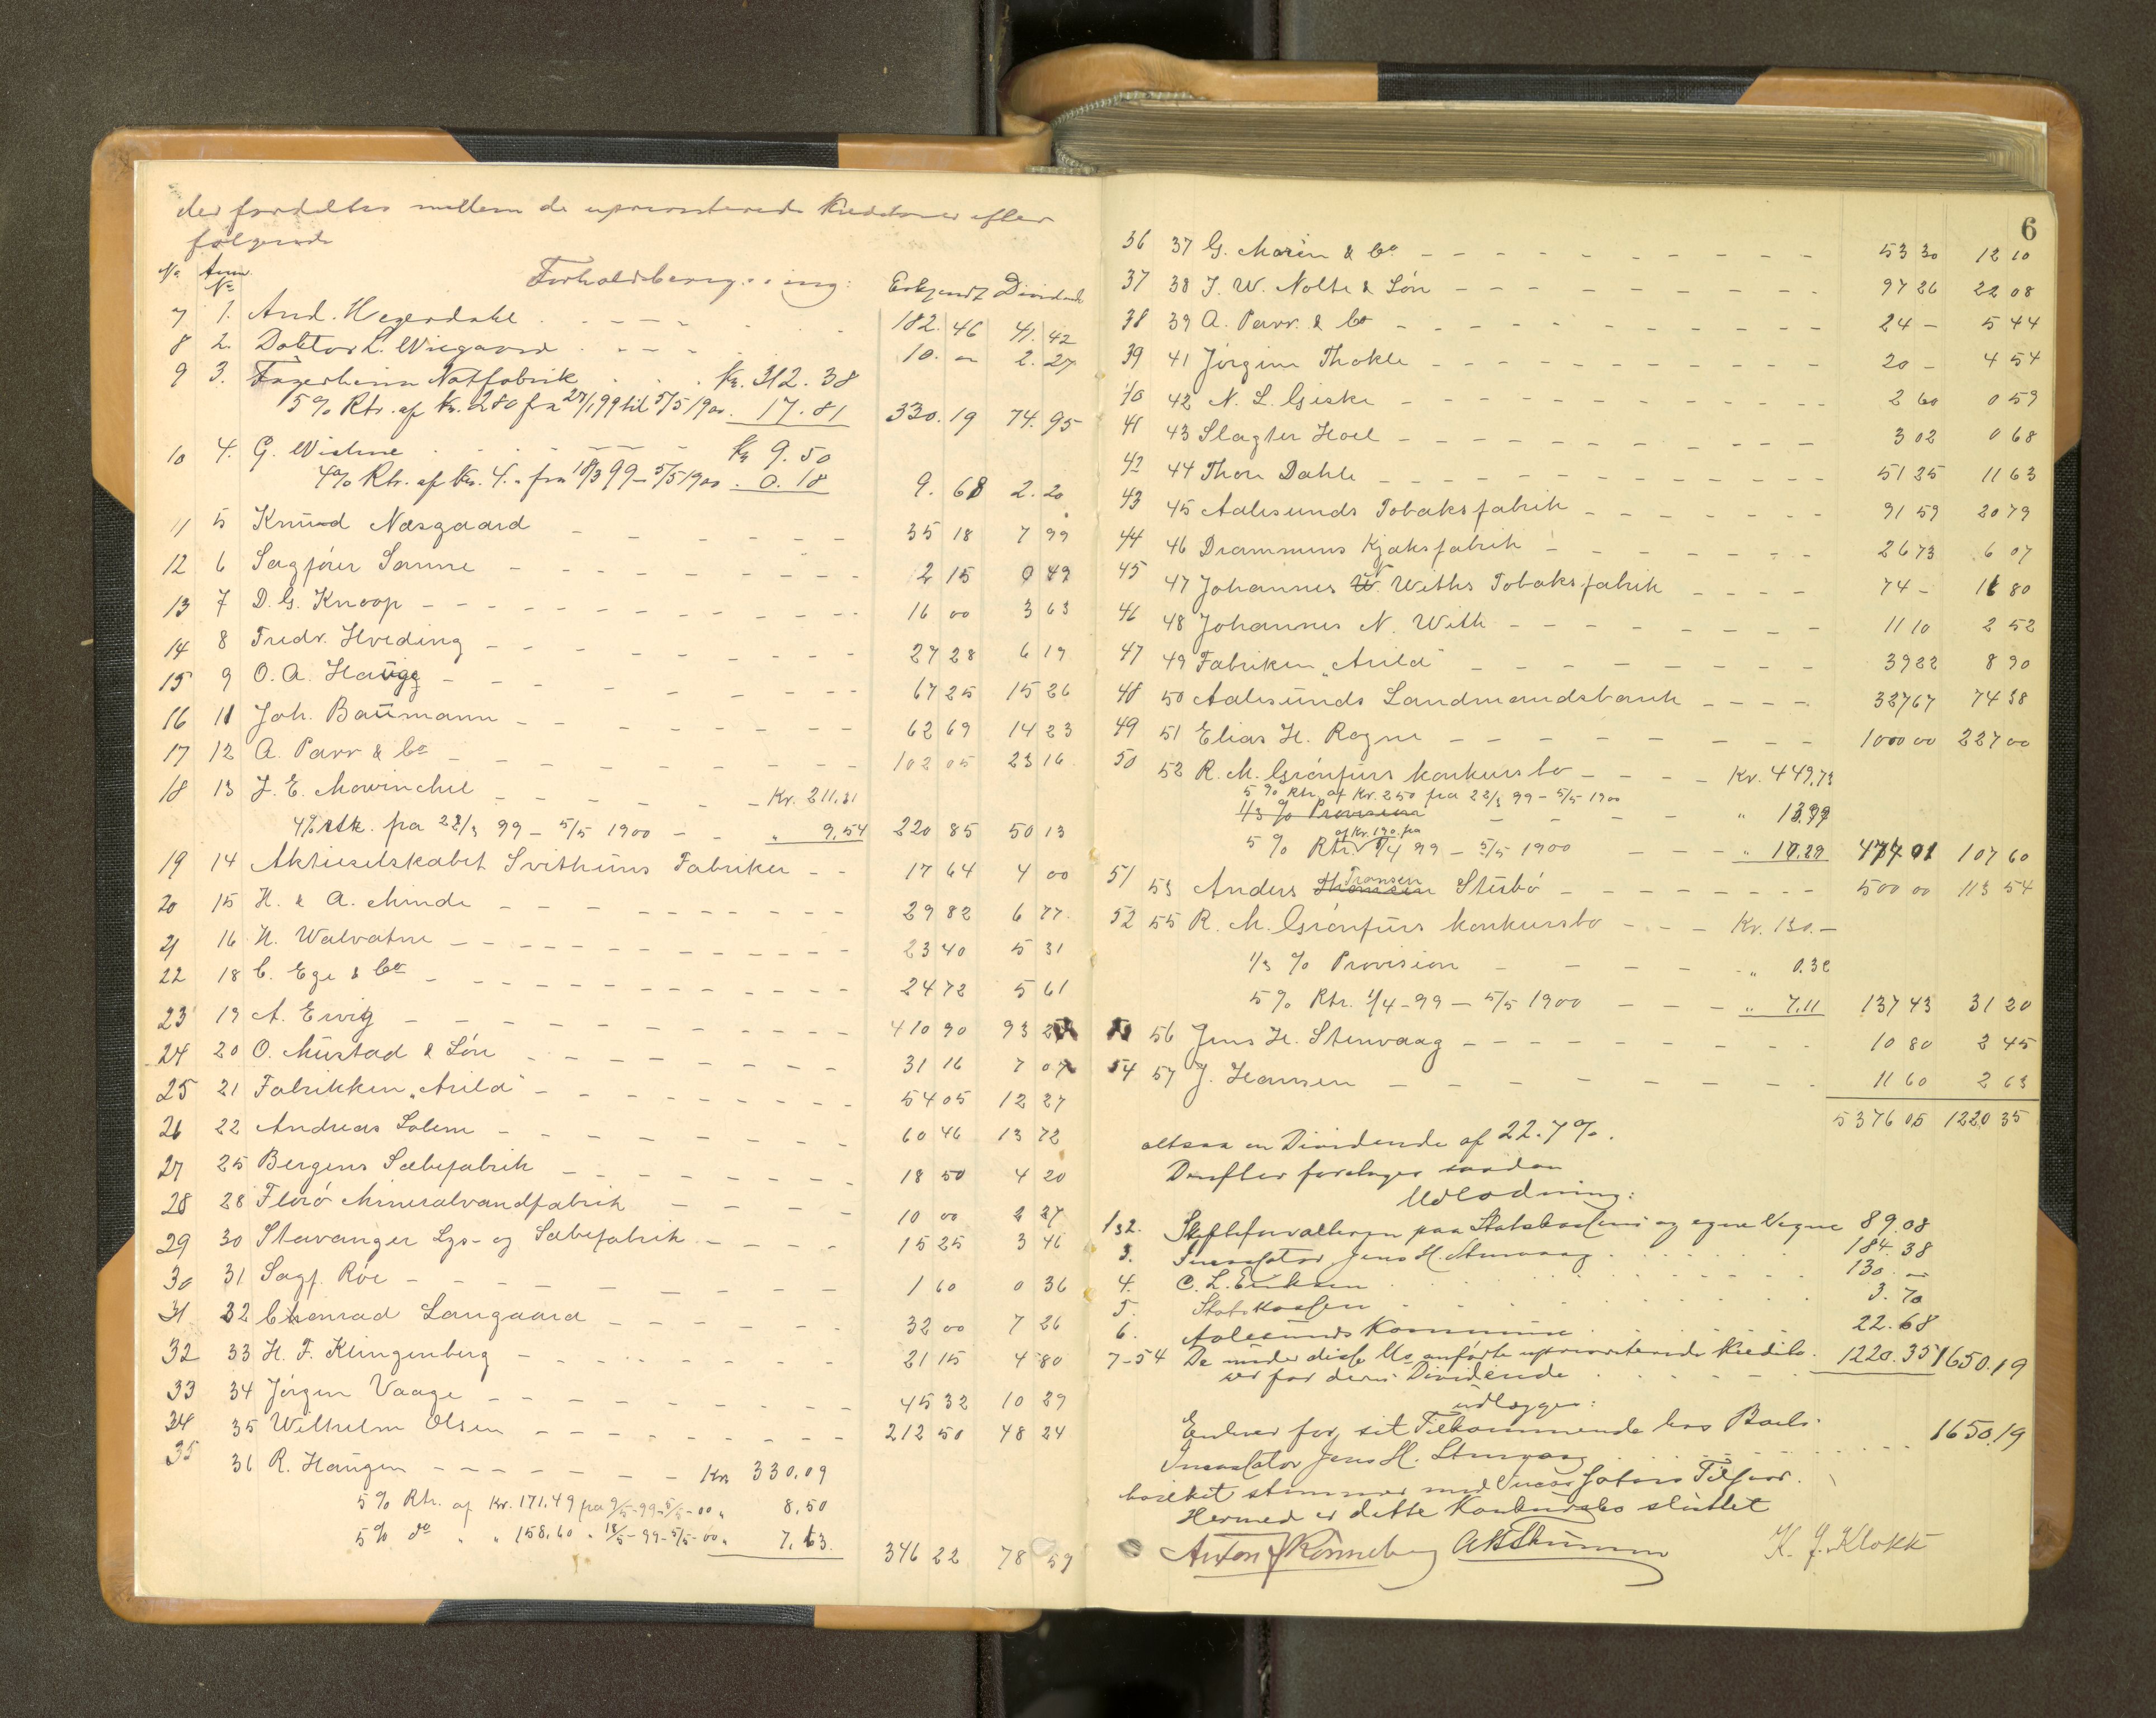 der fordeltes mellem de uprioriterede Kreditorer efter
følgende
No. Anm. No. Forholdsberegning: Erkjendt Dividende
7 1. And. Hegerdahl 182.46 41.42
8 2. Doktor L. Wiegaard 10. - 2.27
9 3. Fagerheim Notfabrik Kr. 312.38
5% Rtr. af Kr. 280 fra 27/1 99 til 5/5 1900. 17.81 330.19 74.95
10 4. G. Wistne Kr 9.50
4% Rtr. af Kr. 4.- fra 18/3 99 - 5/5 1900. 0.18 9.68 2.20
11 5 Knud Næsgaard 35 18 7 99
12 6 Sagfører Sanne 2 15 0 49
13 7 D. G. Knoop 16 00 3 63
14 8 Fredr. Hveding 27 28 6 19
15 9 O. A. Haugg 67 25 15 26
16 11 Joh. Baumann 62 69 14 23
17 12 A. Parr & Co 102 05 23 16
18 13 J. E. Mowinchel Kr. 211,31
4% rtk. fra 22/3 99 - 5/5 1900 " 9,54 220 85 50 13
19 14 Aktieselskabet Svithuns Fabriker 17 64 4 00
20 15 H. & A. Minde 29 82 6 77
21 16 H. Walvatne 23 40 5 31
22 18 C. Ege & Co 24 72 5 61
23 19 A. Ervig 410 90 93 27
24 20 O. Mustad & Søn 31 16 7 07
25 21 Fabrikken „Arild" 54 05 12 27
26 22 Andreas Solem 60 46 13 72
27 25 Bergens Sæbefabrik 18 50 4 20
28 28 Florø Mineralvandfabrik 10 00 2 27
29 30 Stavanger Lys- og Sæbefabrik 15 25 3 46
30 31 Sagf. Röe 1 60 0 36
31 32 Chonrad Langaard 32 00 7 26
32 33 H. F. Klingenberg 21 15 4 80
33 34 Jørgen Vaage 45 32 10 29
34 35 Wilhelm Olsen 212 50 48 24
35 36 R. Haugen Kr 330,09
5% Rtr. af Kr. 171.49 fra 9/5-99-5/5-00 " 8,50
5% do " " 158,60 " 18/5-99-5/5-00 " 7,63. 346 22 78 59
6
36 37 G. Morin & Co 53 30 12 10
37 38 J. W. Nolte & Søn 97 26 22 08
38 39 A. Parr. & Co 24 - 5 44
39 41 Jørgine Thokle 20 - 4 54
40 42 N. L. Giske 2 60 0 59
41 43 Slagter Hoel 3 02 0 68
42 44 Thore Dahle 51 25 11 63
43 45 Aalesunds Tobaksfabrik 91 59 20 79
44 46 Drammens Kjæksfabrik 26 73 6 07
45 47 Johannes N. Withs Tobaksfabrik 74 - 16 80
46 48 Johannes N. With 11 10 2 52
47 49 Fabriken „Arild" 39 22 8 90
48 50 Aalesunds Landmandsbank 327 67 74 38
49 51 Elias H. Rogne 1000 00 227 00
50 52 R. M. Grönfurs konkursbo Kr. 449,73
5% Rtr. af Kr. 250 fra 22/3 99 - 5/5 1900
1/3 % Provision " 13.99
5% Rtr. af Kr. 190. fra 1/4 99 - 5/5 1900 " 10.29 474 01 107 60
51 53 Anders Thomsen Transen Stusbö 500 00 113 54
52 55 R. M. Grönfurs konkursbo Kr. 130.-
1/3 % Provision " 0.32
5% Rtr. 1/4-99 - 5/5 1900 " 7.11 137 43 31 20
53 56 Jens H. Stenvaag 10 80 2 45
54 57 J. Hansen 11 60 2 63
5376 05 1220 35
altsaa en Dividende af 22.7%.
Derefter foretages saadan
Udlodning:
1 & 2. Skifteforvalteren paa Statskassens og egne Vegne 89.08
3. Incassator Jens H. Stenvaag 184.38
4. C. L. Eriksen 130. -
5. Statskassen 3.70
6. Aalesunds Kommune 22.68
7-54 De under disse No anførte uprioriterede Kredito-
rer for deres Dividende 1220.35 1650.19
udlægges:
Enhver for sit Tilkommende hos Boets
Incassator Jens H. Stenvaag 1650.19
hvilket stemmer med Incassators Tilsvar.
Hermed er dette Konkursbo sluttet
Anton J Rønneberg K. J. Klokk